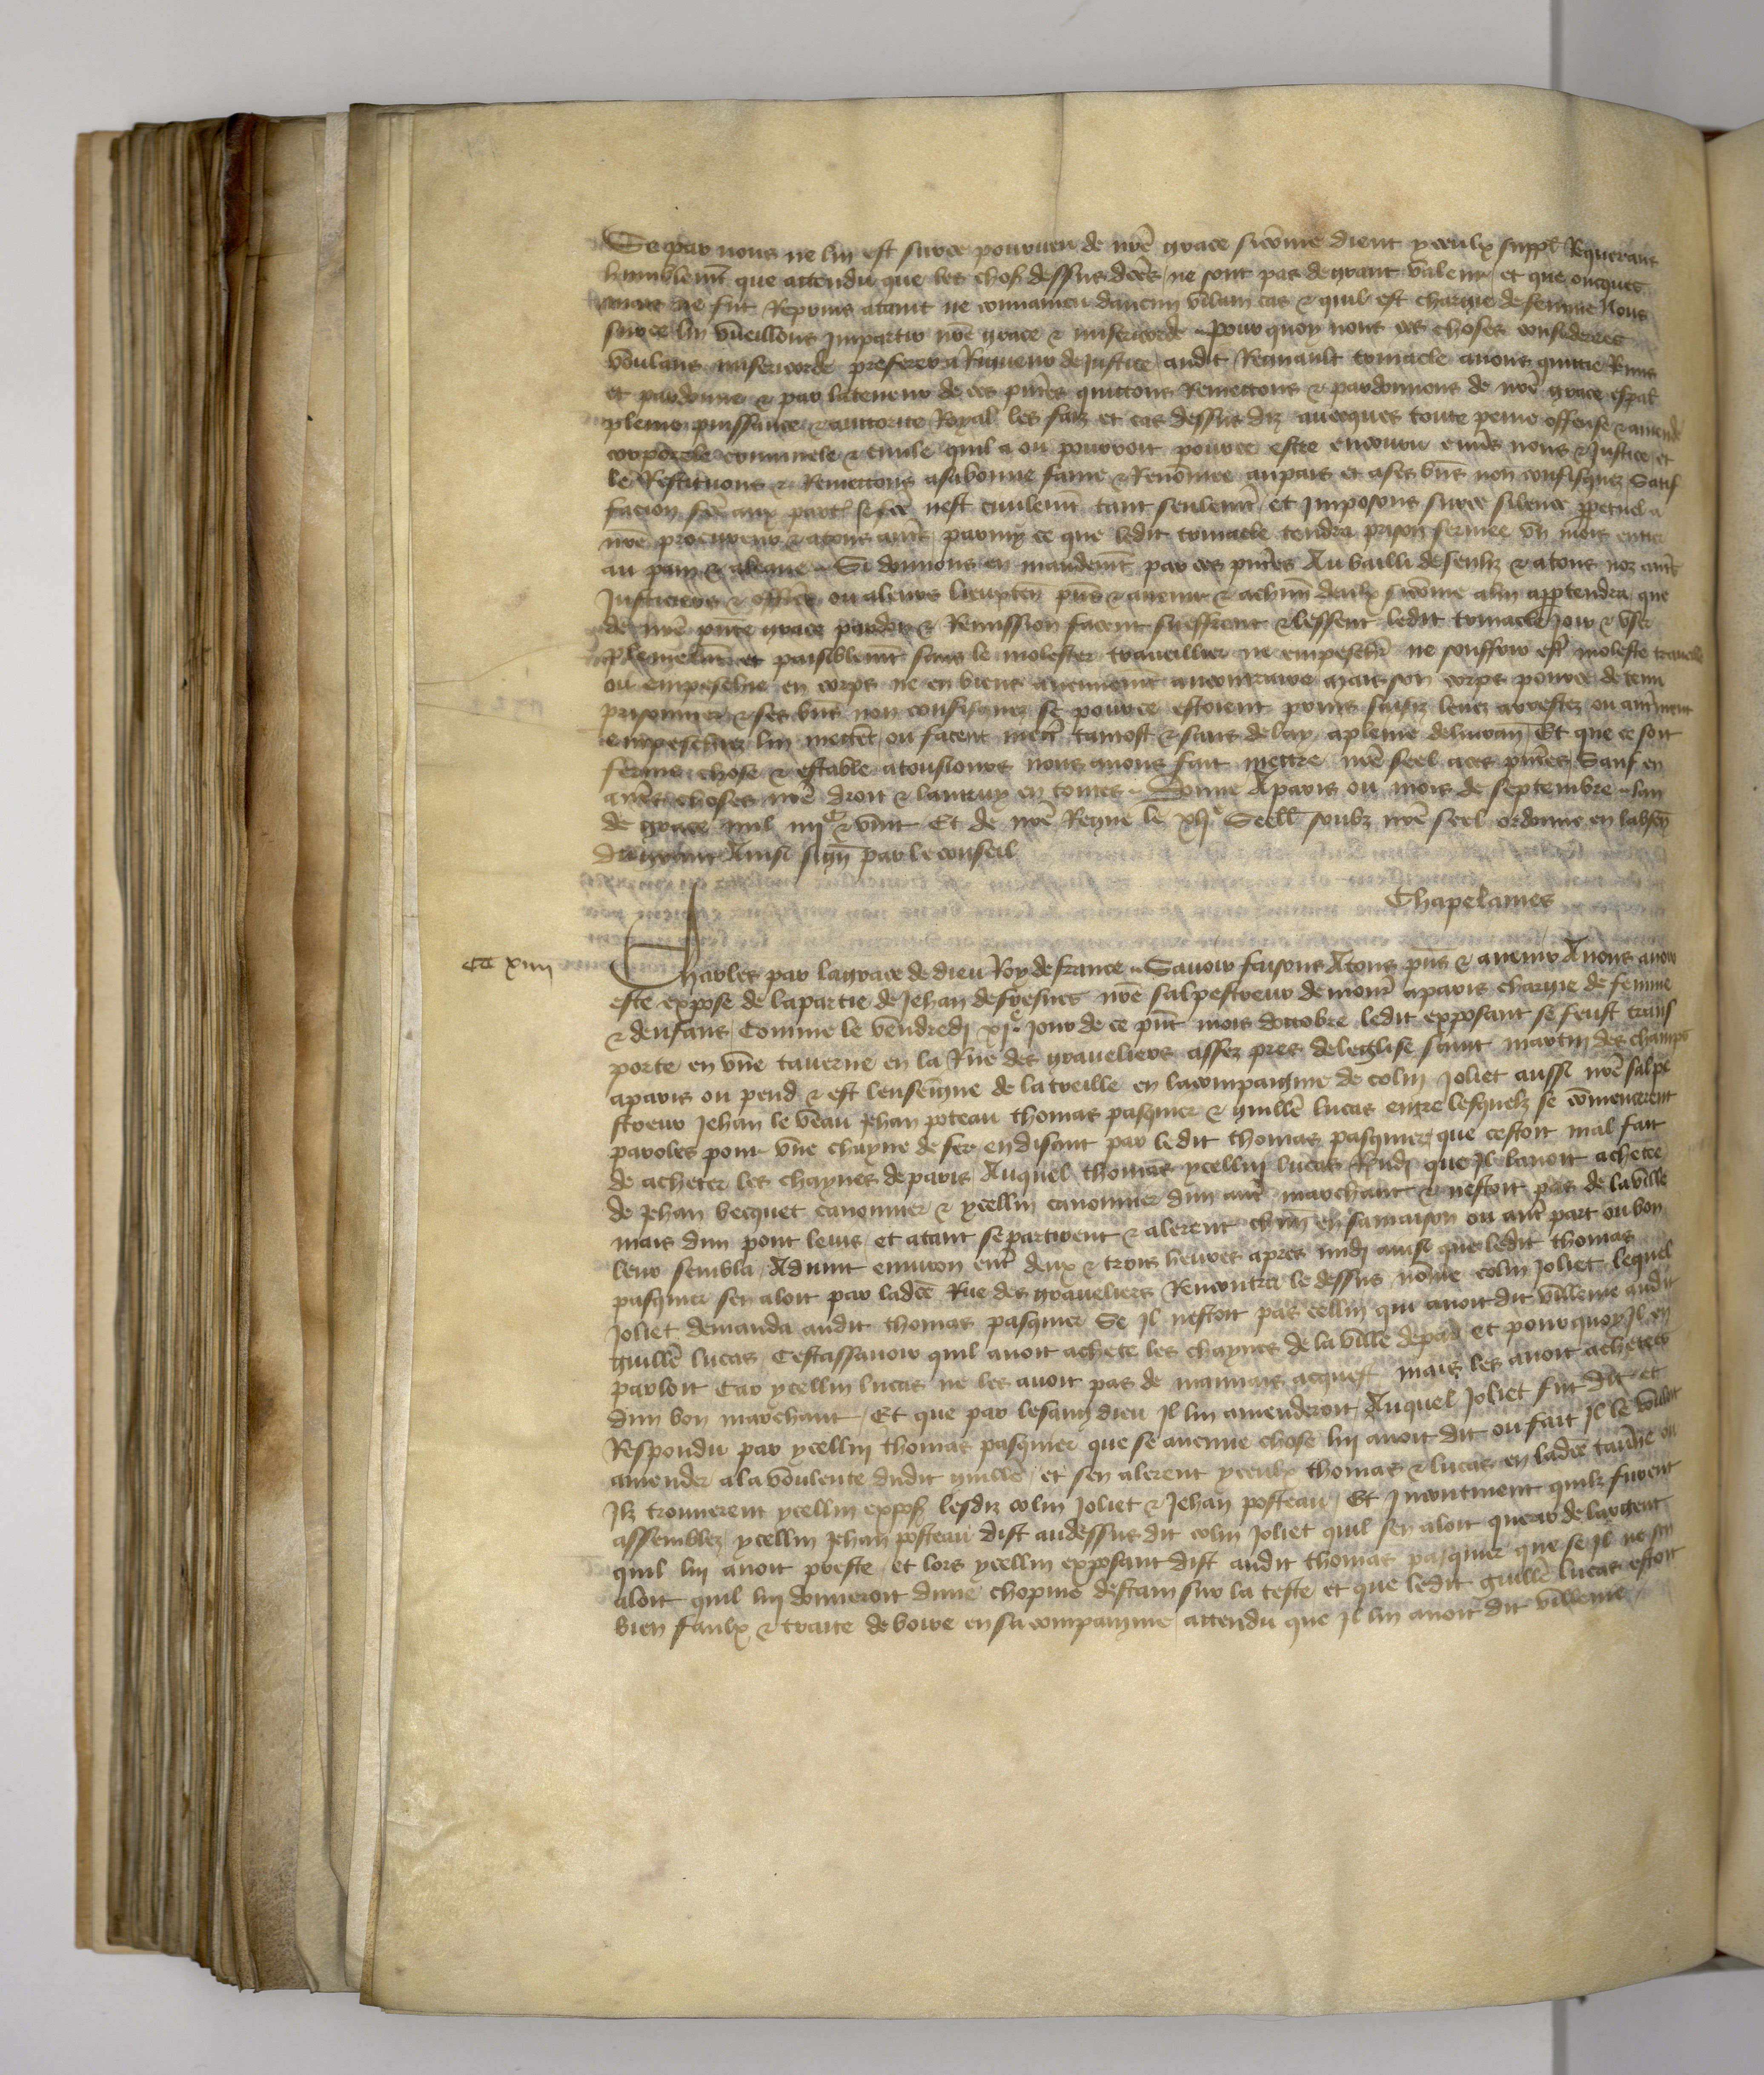 Se par nous ne lui est surce pourveu de nrē grace sicōme dient yceulx suppl Requerans
humblemt que attendu que les chos dessus dcēs ne sont pas de grant valeur et que oncques
mais ne fut Reprins ataint ne convaincu daucun vilain cas & quil est chargie de femme Nous
surce lui vueillons Impartir nrē grace & misericorde Pour quoy nous ces choses considerees
voulans misericorde preferer a Rigueur de Justice audit Regnault tornacle avons quictie Remis
et pardonne & par la teneur de ces pntēs quictons Remettons & pardonnons de nrē grace espal
pleine puissance & auctorite Royal les faiz et cas dessus diz avecques toute peine offense & amende
corporele criminele & civile quil a ou pourroit pource estre encouru envs nous & Justice et
le Restituons & Remettons a sa bonne fame & Renōmee au pais et a ses bns non confisquez Satis
facion fcē aux part se fcē nest civilemt tant seulemt et Imposons surce silence ppetuel a
nrē procureur & a tous autrs parmy ce que ledit tornacle tendra prison fermee un mois entier
au pain & a leaue Si donnons en mandemt par ces pntēs Au bailli de senliz & a tous noz autrs
Justiciers & officrs ou a leurs lieuxten pns & avenir & a chun deulx sicōme a lui apptendra que
de nrē pntē grace pardon & Remission facent sueffrent & lessent ledit tornacle Joir & user
plainemt et paisiblemt sans le molester traveillier ne empeschr ne souffrir estr moleste traveille
ou empeschie en corps ne en biens aucunemt aucontraire mais son corps pource detenu
prisonnier & ses bns non confisquez se pource estoient prins saisiz levez arrestez ou autrment
empeschiez lui mettēt ou facent mettr tantost & sans delay a pleine delivran Et que ce soit
ferme chose & estable a tousiours nous avons fait mettre nrē seel a ces pntēs Sauf en
autrs choses nrē droit & lautruy en toutes Donne A paris ou mois de septembre lan
de grace mil iiijc & vint Et de nrē Regne le xlje Seelle soubz nrē seel ordonne en labsen
du grant Ainsi signe par le conseil
Chapelaines
CC xiiii
Charles par la grace de dieu Roy de france Savoir faisons A tous pns & avenir A nous avoir
este expose de la partie de Jehan desfresnes nrē salpestreur demour a paris chargie de femme
& denfans Comme le vendredi xje jour de ce pnt mois doctobre ledit exposant se feust trans
porte en une taverne en la Rue des graveliers assez pres de leglise saint martin des champs
a paris ou pend & est lenseigne de la treille en la compaignie de colin Joliet aussi nrē salpe
streur Jehan le veau Jehan poteau thomas pasquier & guillē lucas entre lesquelz se cōmencerent
paroles pour une chayne de fer en disant par ledit thomas pasquier que cestoit mal fait
de acheter les chaynes de paris Auquel thomas ycellui lucas Rndi que Il lavoit achetee
de Jehan becquet canonnier & ycellui canonnier dun autr marchant & nestoit pas de la ville
mais dun pont levis et atant se partirent & alerent chun en sa maison ou autr part ou bon
leur sembla Advint environ entr deux & trois heures apres midi ainsi que ledit thomas
pasquier sen aloit par ladcē Rue des graveliers Rencontra le dessus nōme colin Joliet lequel
Joliet demanda audit thomas pasquier Se Il nestoit pas cellui qui avoit dit villenie audit
guillē lucas Cestassavoir quil avoit achete les chaynes de la ville de par et pourquoy Il en
parloit Car ycellui lucas ne les avoit pas de mauvais acquest mais les avoit achetees
dun bon marchant Et que par le sang dieu Il lui amenderoit Auquel Joliet fut dit et
Respondu par ycellui thomas pasquier que se aucune chose lui avoit dit ou fait Il le vouloit
amender a la voulente dudit guillē et sen alerent yceulx thomas & lucas en ladcē tavne ou
Ilz trouverent ycellui exps lesdiz colin Joliet & Jehan posteau Et Incontinent quilz furent
assemblez ycellui Jehan posteau dist audessus dit colin Joliet quil sen aloit querir de largent
quil lui avoit preste et lors ycellui exposant dist audit thomas pasquier que se Il ne sen
aloit quil lui donneroit dune chopine destain sur la teste et que ledit guillē lucas estoit
bien faulx & traitre de boire en sa compaignie attendu que Il lui avoit dit villenie